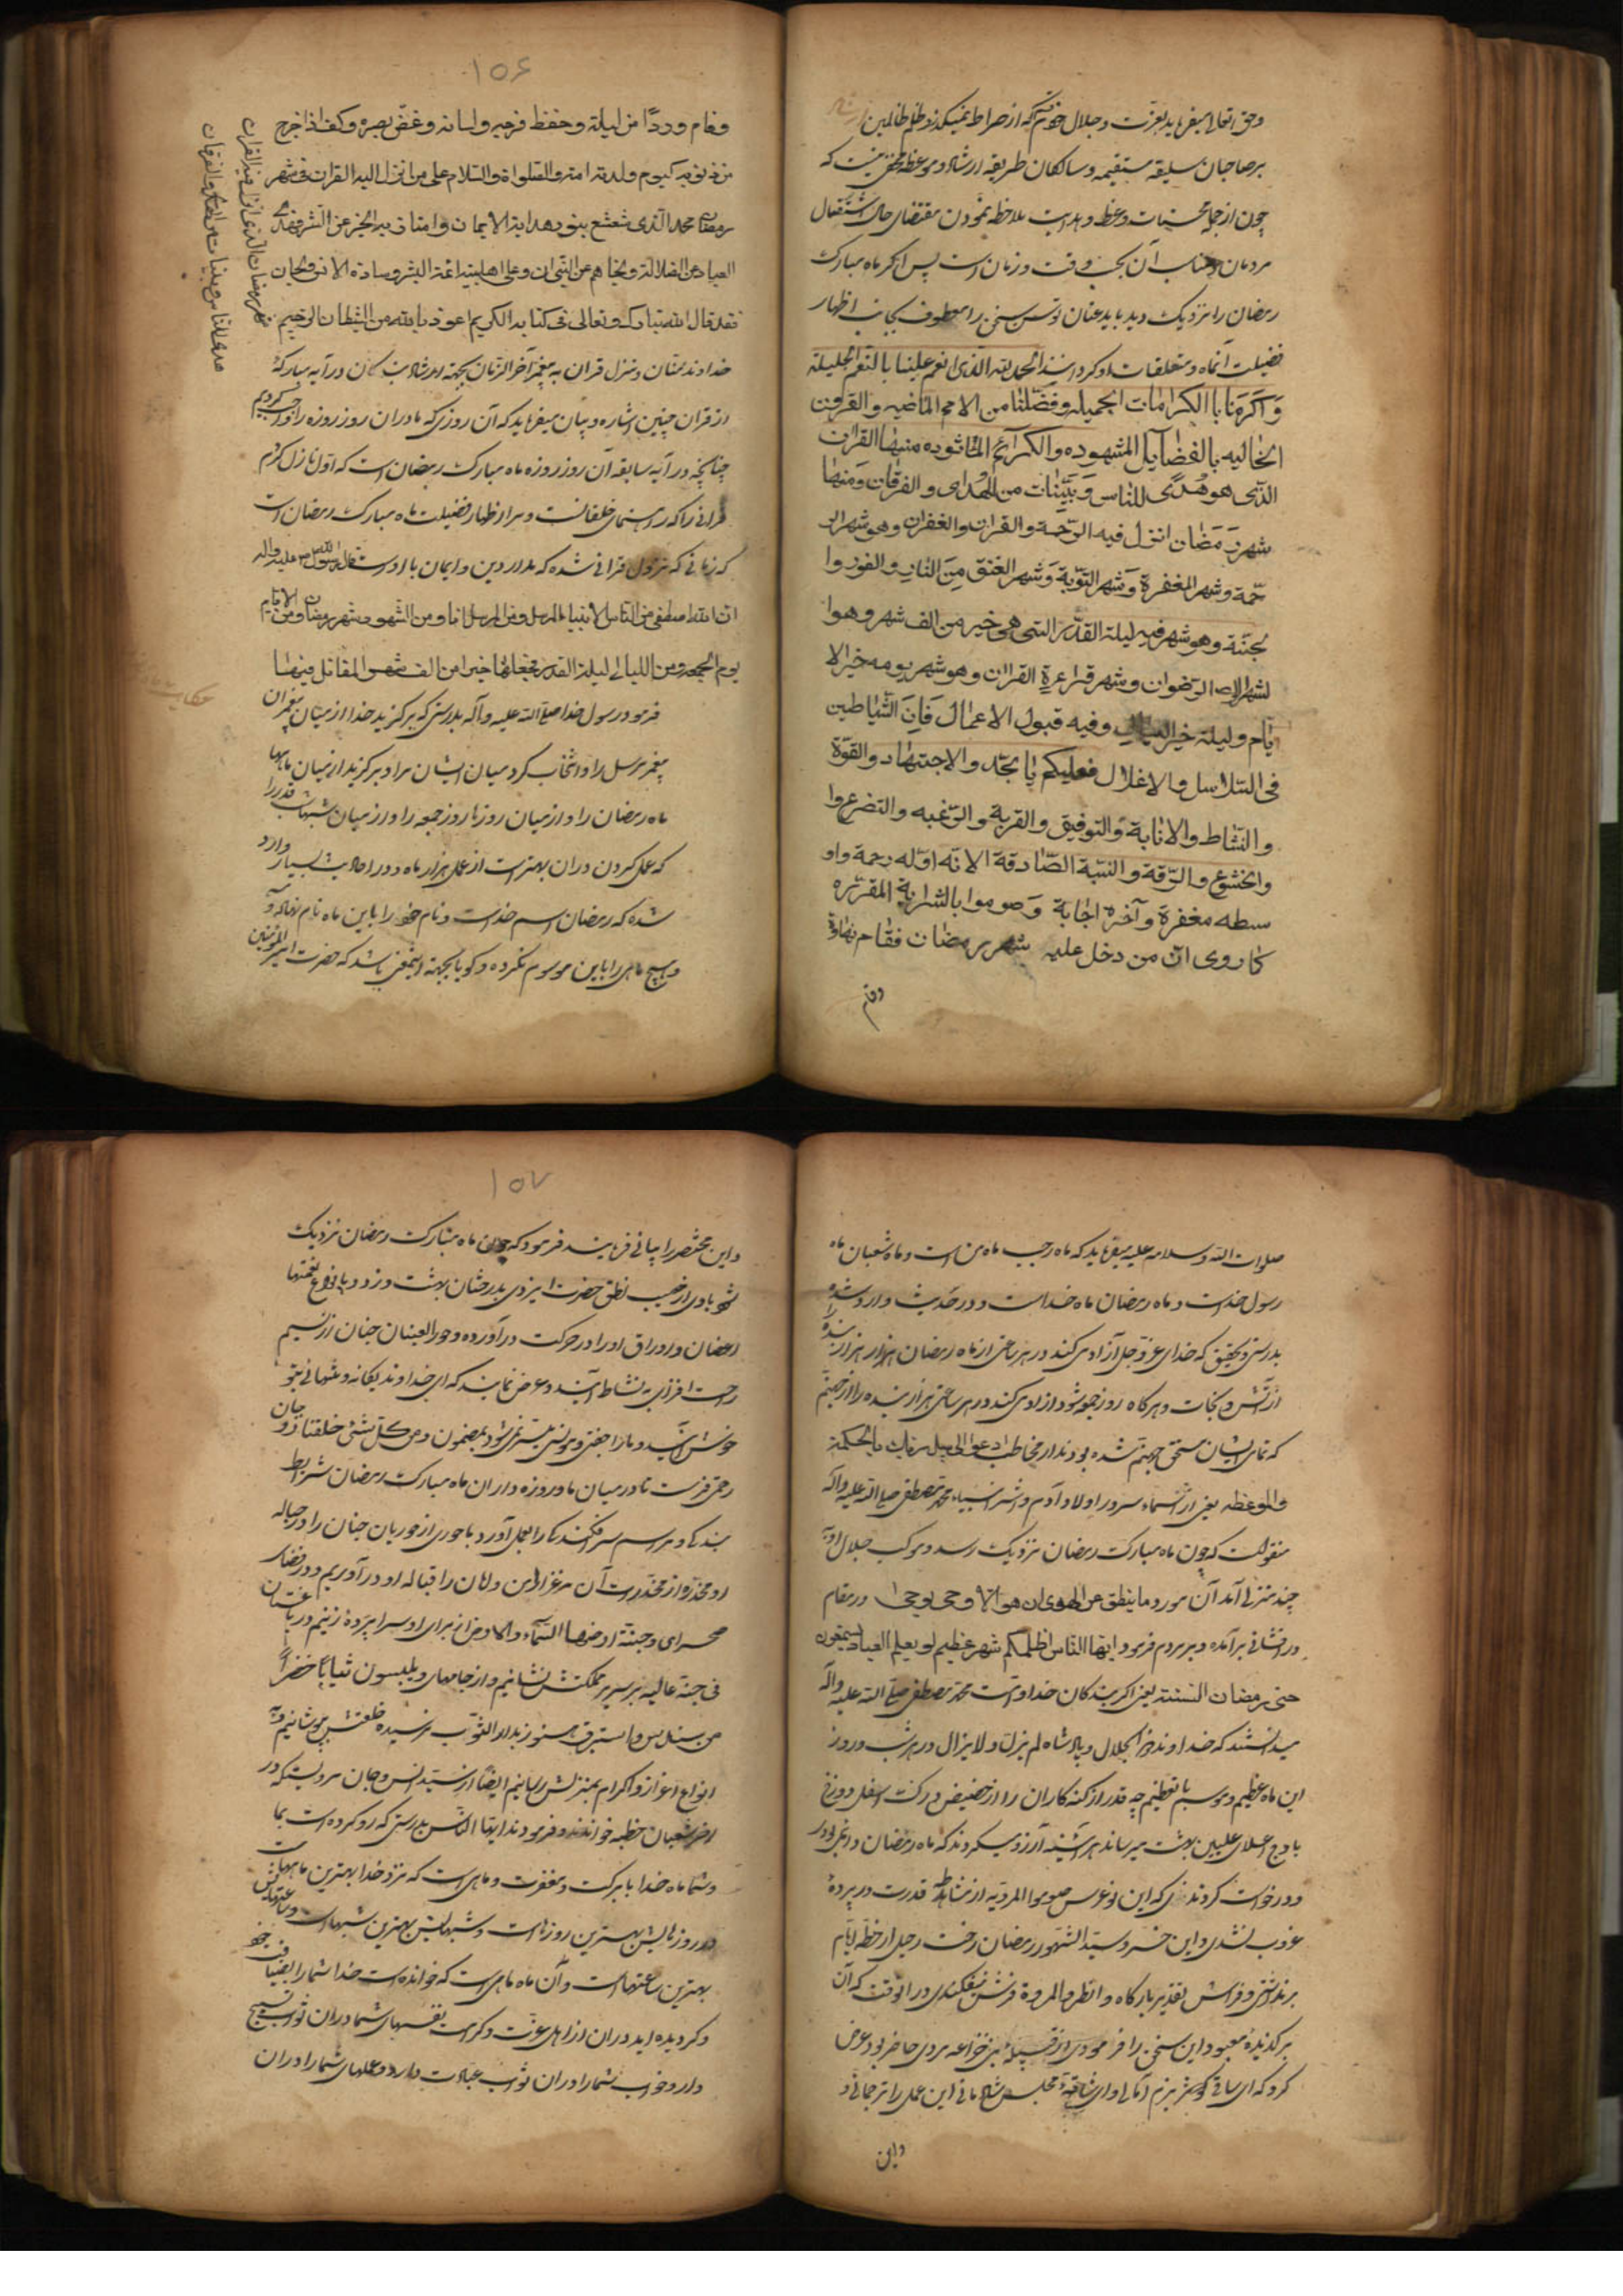 وحق تعالی میفرماید بعزت و جلال خودم که از صراط نمیگذرد ظلم ظالمین
بر صاحبان سلیقه مستقیمه و سالکان طریقه ارشاد و موعظه مخفی نیست که
چون از جمله محسنات وعظ و هدایت ملاحظه نمودن مقتضای حال اشتغال
مردمان و مناسب آن بحسب وقت و زمان است پس اگر ماه مبارک
رمضان را نزدیک دید باید عنان توسن سخن را معطوف بجانب اظهار
فضیلت آنماه و متعلقات او کرداند الحمد لله الذی انعم علینا بالنعم الجلیلة
وَاَکرَمَنا باالکرامات الجمیله وفضّلنا من الامم الماضیه والقرون
الخالیه بالفضایل المشهوده والکرائم الماثوره منها القران
الذی هو هُدیً للناس وَبَیّنات من الهُدی والفرقان وَمنها
شهر رَمَضان انزل فیه الرّحمة والقران والغفران وهو شهر الر
حمة وشهر المغفرة وَشهر التوبة وَشهر العتق مِنَ النار والفوز وا
لجنّة وهو شهر فیه لیلة القدر التی هی خیر من الف شهر وهوا
لشهر الرضوان وشهر قراءة القران وهو شهر یومه خیر الا
یام ولیلته خیر اللیالی وفیه قبول الاعمال فَاِنَ الشیاطین
فی السّلاسل والاغلال فعلیکم یا بجد والاجتهاد والقوّة
والنّشاط والانابة والتوفیق والقربة والرّغبه والتضرع وا
والخشوع والرّقة والنیّة الصّادقة الا نّه اوّله رحمة واو
سطه مغفرة وآخره اجابة وَصوموا بالشرایة المقرّره
کا روی انّ من دخل علیه شهر رمضان فقام نهاره
وقام
۱۵۶
وقام وِردًا من لیلة وحفظ فرجه ولسانه وغض بصره وکف اذا خرج
من ذنوبه کیوم ولدته امّه والصّلواة والسّلام علی من انزل الیه القران فی شهر
رمضان محمد الذی شعشع بنور هدایة الایمان
العباد عن الضلالة ونجاهم عن النیران وعلی اهلبیته ائمة البشر وسادة الانس والجان
فقد قال الله تبارک وتعالی فی کتابه الکریم اعوذ بالله من الشیطان الرجیم
شهر رمضان الذی انزل فیه القران
هدی للناس وبینات من الهدی والفرقان
خداوند منّان و منزل قران به پیغمبر آخر الزمان بجهة ارشاد بندگان در آیه مبارکهٔ
از قران چنین اشاره و بیان میفرماید که آن روزی که ما در ان روز روزه را واجب کردیم
چنانچه در آیه سابقه آن روز روزه ماه مبارک رمضان است که اول نازل کردم
قرانی را که رهنمای خلقانست و مراد اظهار فضیلت ماه مبارک رمضان است
که زمانی که نزول قرانی شده که مدار دین و ایمان با اوست قال رسول الله صلی علیه واله
ان الله اصطفی من الناس الانبیاء المرسل ومن المرسل انا ومن الشهور شهر رمضان ومن الایام
یوم الجمعه ومن اللیالی لیلة القدر فجعلها خیرا من الف شهر المقاتل فیها
فرمود رسول خدا صلی الله علیه وآله بدرستی که برگزید خدا از میان پیغمبران
پیغمبر مرسل را و انتخاب کرد میان ایشان مرا و برگزید از میان ماهها
ماه رمضان را و از میان روزها روز جمعه را و از میان شبها شب قدر را
که عمل کردن دران بهتر است از عمل هزار ماه و در احادیث بسیار وارد
شده که رمضان اسم خداست و نام خود را باین ماه نام نهاده و
و هیچ ماهی را باین موسوم نکرده و گویا بجهة اینمعنی باشد که حضرت امیر المؤمنین
صلوات الله وسلامه علیه میفرماید که ماه رجب ماه من است و ماه شعبان ماه
رسول خداست و ماه رمضان ماه خداست و در حدیث وارد شده
بدرستی و تحقیق که خدای عز وجل آزاد میکند در هر ساعتی از ماه رمضان هزار هزار بنده را
از آتش و نجات و هر گاه روز جمعه شود آزاد می کند در هر ساعتی هزار بنده را از جهنم
که تمامی ایشان مستحق جهنم شده بودند از مخاطب ادعو الی سبیل ربک بالحکمة
والموعظه یعنی سرور اولاد آدم و اشرف انبیاء محمد مصطفی صلی الله علیه وآله
منقولست که چون ماه مبارک رمضان نزدیک رسد و موکب جلال او
چند منزلی آمد آن مورد وما ینطق عن الهوی ان هو الا وحی یوحی در مقام
در افشانی برآمده و بر مردم فرمود ایها الناس اظلکم شهر عظیم لو یعلم العباد
حتی رمضان السنة یعنی اگر بندگان خدا و امت محمد مصطفی صلی الله علیه وآله
میدانستند که خداوند ذو الجلال و پادشاه لم یزل ولا یزال در هر شب و روز
این ماه عظیم و موسم با تعظیم چه قدر از گنه کاران را از حضیض درکت اسفل دوزخ
باوج اعلای علیین بهشت میرساند هر آینه آرزو میکردند که ماه رمضان دائمی بودی
و درخواست کردندی که این نو عروس صوموا لرؤیته از مشاطه قدرت در پردهٔ
غروب نشدی و این خسرو سیّد الشهور رمضان رخت رحیل از خطه ایام
برنداشتی و فراش تقدیر بارگاه وافطروا لرؤیة فرش نیفکندی در انوقت که آن
برگزیدهٔ معبود این سخن را فرمودی از قبیلهٔ بنی خزاعه مردی حاضر بود عرض
کرد که ای ساقی کوثر بزم امکان وای شافع مجلس شاهانی این عمل را ترجمانی و
واین
۱۵۷
و این مختصر را بیانی فرمایند فرمود که چون ماه مبارک رمضان نزدیک
شود بادی از مهب لطف حضرت ایزدی بدرختان بهشت وزد و بانواع نغمتها
اغصان و اوراق او را در حرکت درآورده و حور العینان جنان از نسیم
راحت افزای به نشاط آیند و عرض نمایند که ای خداوند یگانه و تنهائی بتو
خوش آیند و ما را جفتی و مونسی میسر نمی شود بمضمون ومن کل شیء خلقنا زوجان
رحمتی فرست تا در میان ما و روزه داران ماه مبارک رمضان شرایط
بندگی و مراسم سرافکندگی را بعمل آورد با حوری از حوریان جنان را در حباله
او مخدره از مخدرات آن مرغزار امن و امان را قباله او درآوریم و در فضای
صحرای وجنة عرضها السماء والارض از برای او سراپردهٔ زنیم در باغستان
فی جنة عالیه بر سریر مملکتش نشانیم و از جامهای ویلبسون ثیابا خضرا
من سندس واستبرق هنوز بدار الثواب نرسیده خلعتش پوشانیم و
انواع اعزاز و اکرام بمنزلش رسانیم ایضا از سید انس و جان مرویست که در
اخر شعبان خطبه خواندند و فرمودند ایها الناس بدرستی که رو کرده است بما
و شما ماه خدا با برکت و مغفرت و ماهی است که نزد خدا بهترین ماههاست
و روزهایش بهترین روزهاست و شبهایش بهترین شبها است و ساعتهایش
بهترین ساعتهاست و آن ماه ماهی است که خوانده است خدا شما را بضیافت خود
و گردیده اید دران از اهل عزت و کرامت نفسهای شما دران ثواب تسبیح
دارد و خواب شما را دران ثواب عبادت دارد و عملهای شما را دران